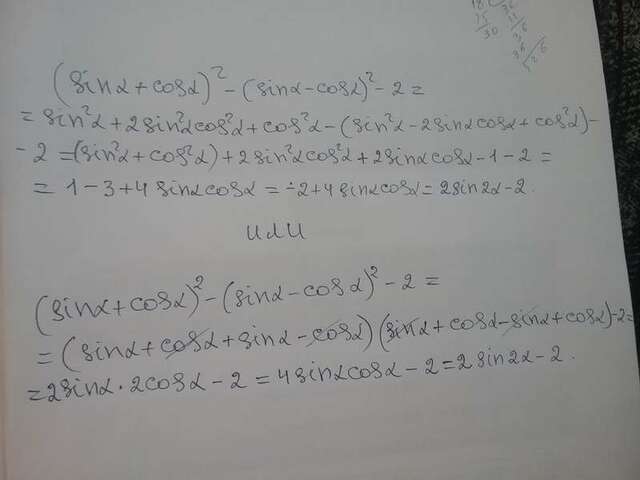 (sinα + cosα)² - (sinα - cosα)² - 2 =
= sin²α + 2sin²αcos²α + cos²α - (sin²α - 2sinαcosα + cos²α) -
- 2 = (sin²α + cos²α) + 2sin²αcos²α + 2sinαcosα - 1 - 2 =
= 1 - 3 + 4sinαcosα = -2 + 4sinαcosα = 2sin2α - 2.
или
(sinα + cosα)² - (sinα - cosα)² - 2 =
= (sinα + cosα + sinα - cosα)(sinα + cosα - sinα + cosα) - 2 =
= 2sinα · 2cosα - 2 = 4sinαcosα - 2 = 2sin2α - 2.